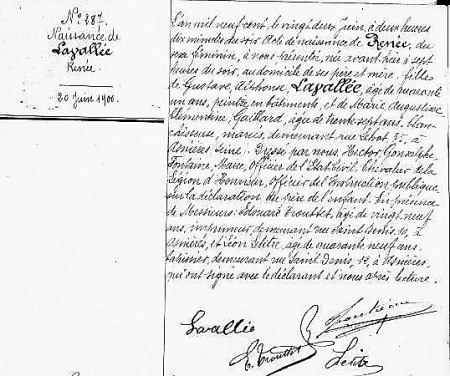 N° 287.
Naissance de
Lavallée
Renée.
20 Juin 1900.
L'an mil neuf cent, le vingt deux Juin, à deux heures
dix minutes du soir Acte de naissance de Renée, du
sexe féminin, à nous présentée, née avant hier à sept
heures du soir, au domicile de ses père et mère, fille
de Gustave, Alphonse, Lavallée, âgé de quarante
un ans, peintre en bâtiments, et de Marie, Augustine
Clémentine, Gaillard, âgée de trente sept ans, blan-
chisseuse, mariés, demeurant rue 35, à
Asnières, Seine. Dressé par nous, Hector, Gonsalphe,
Fontaine, Maire, Officier de l'Etat Civil, Chevalier de la
Légion d'Honneur, Officier de l'Instruction publique,
sur la déclaration du père de l'enfant. En présence
de Messieurs: Edouard Trousset, âgé de vingt neuf
ans, imprimeur, demeurant rue Saint Denis, à
Asnières, et Léon, âgé de quarante neuf ans,
demeurant rue Saint Denis, 12, à Asnières,
qui ont signé avec le déclarant et nous après lecture.
Lavallée
E. Trousset